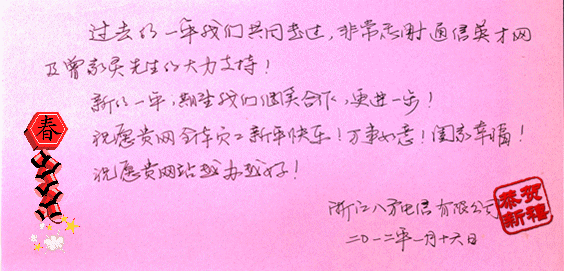 过去的一年我们共同走过，非常感谢通信英才网
及曾家灵先生的大力支持！
新的一年，期望我们继续合作，更进一步！
祝愿贵网全体员工新年快乐！万事如意！阖家幸福！
祝愿贵网站越办越好！
浙江八方电信有限公司
二〇一二年一月十六日
春
恭贺
新禧